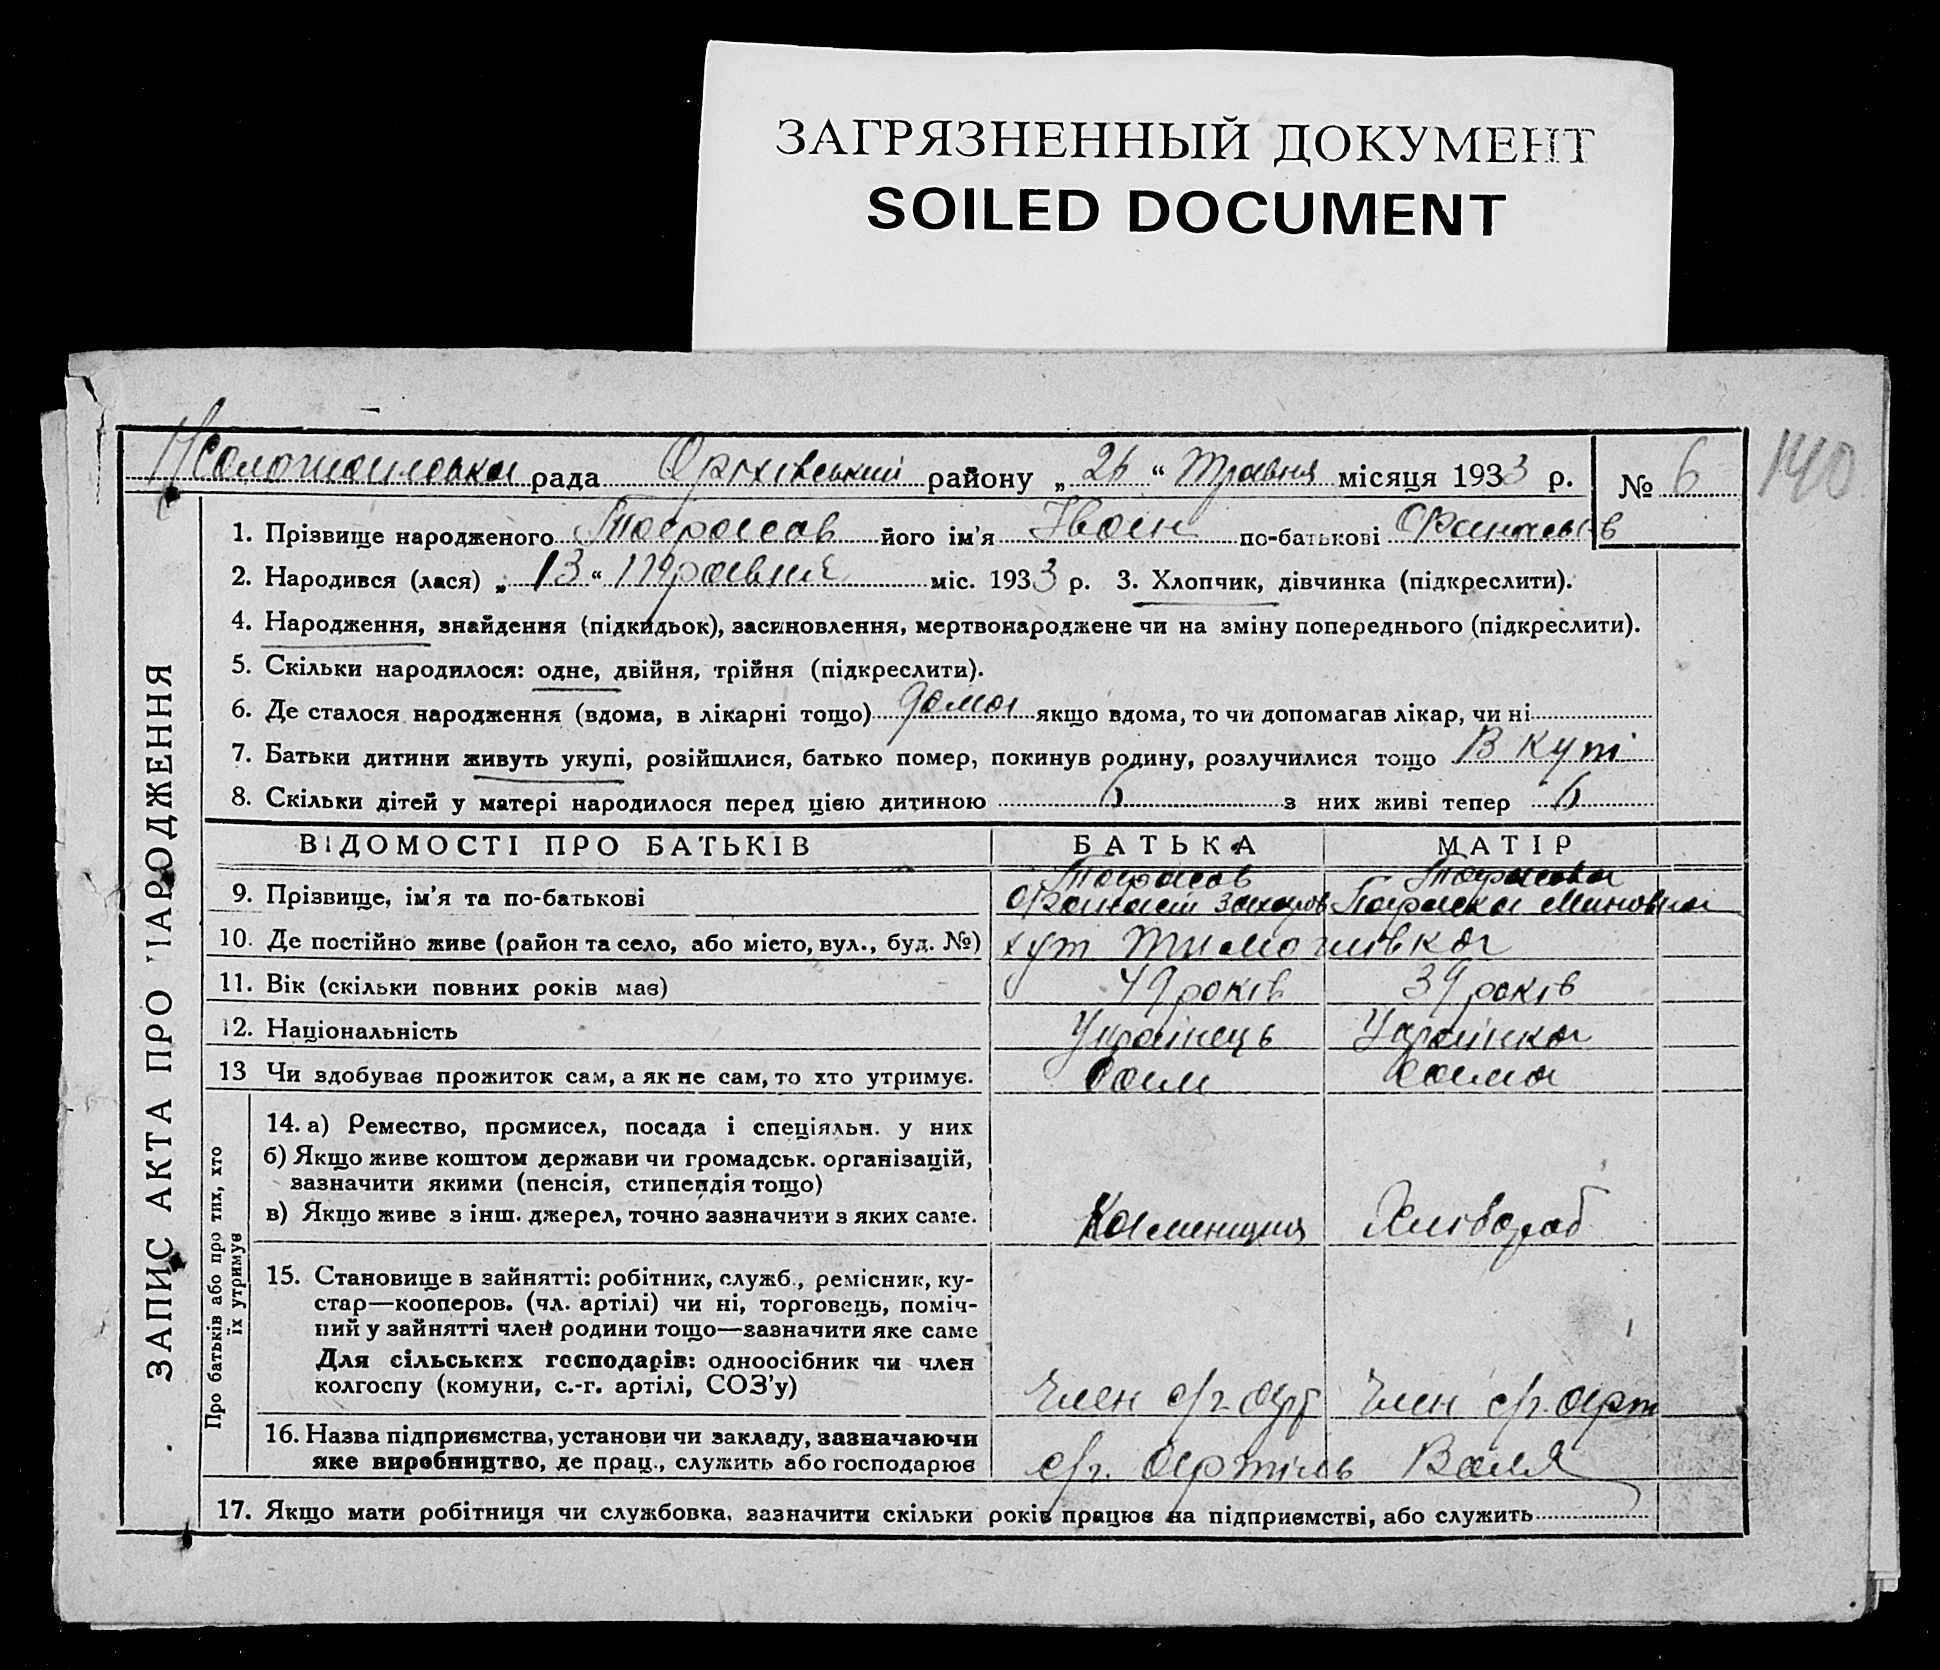 ЗАГРЯЗНЕННЫЙ ДОКУМЕНТ
SOILED DOCUMENT
рада Оріхівський району „ 26 “ Травня місяця 1933 р. № 6 140
1. Прізвище народженого Тарасов його ім'я Іван по-батькові
2. Народився (лася) „ 13 “ Травня міс. 1933 р. 3. Хлопчик, дівчинка (підкреслити).
4. Народження, знайдення (підкидьок), засиновлення, мертвонароджене чи на зміну попереднього (підкреслити).
5. Скільки народилося: одне, двійня, трійня (підкреслити).
6. Де сталося народження (вдома, в лікарні тощо) дома якщо вдома, то чи допомагав лікар, чи ні
7. Батьки дитини живуть укупі, розійшлися, батько помер, покинув родину, розлучилися тощо В купі
8. Скільки дітей у матері народилося перед цією дитиною 6 з них живі тепер 6
ЗАПИС АКТА ПРО НАРОДЖЕННЯ
ВІДОМОСТІ ПРО БАТЬКІВ БАТЬКА МАТІР
Тарасов Тарасова
9. Прізвище, ім'я та по-батькові Захаров Параска
10. Де постійно живе (район та село, або місто, вул., буд. №) хут Тимошівка
11. Вік (скільки повних років має) 49 років 39 років
12. Національність Українець Українка
13 Чи здобуває прожиток сам, а як не сам, то хто утримує. Сам Сама
Про батьків або про тих, хто
їх утримує
14. а) Ремество, промисел, посада і спеціяльн. у них
б) Якщо живе коштом держави чи громадськ. організацій,
зазначити якими (пенсія, стипендія тощо)
в) Якщо живе з інш. джерел, точно зазначити з яких саме. Каменщик Хлібороб
15. Становище в зайнятті: робітник, служб., ремісник, ку-
стар—кооперов. (чл. артілі) чи ні, торговець, поміч-
ний у зайнятті член родини тощо—зазначити яке саме
Для сільських господарів: одноосібник чи член
колгоспу (комуни, с.-г. артілі, СОЗ'у) Член с/г. арт Член с/г. арт
16. Назва підприємства, установи чи закладу, зазначаючи
яке виробництво, де прац., служить або господарює с/г. артіль Воля
17. Якщо мати робітниця чи службовка, зазначити скільки років працює на підприємстві, або служить